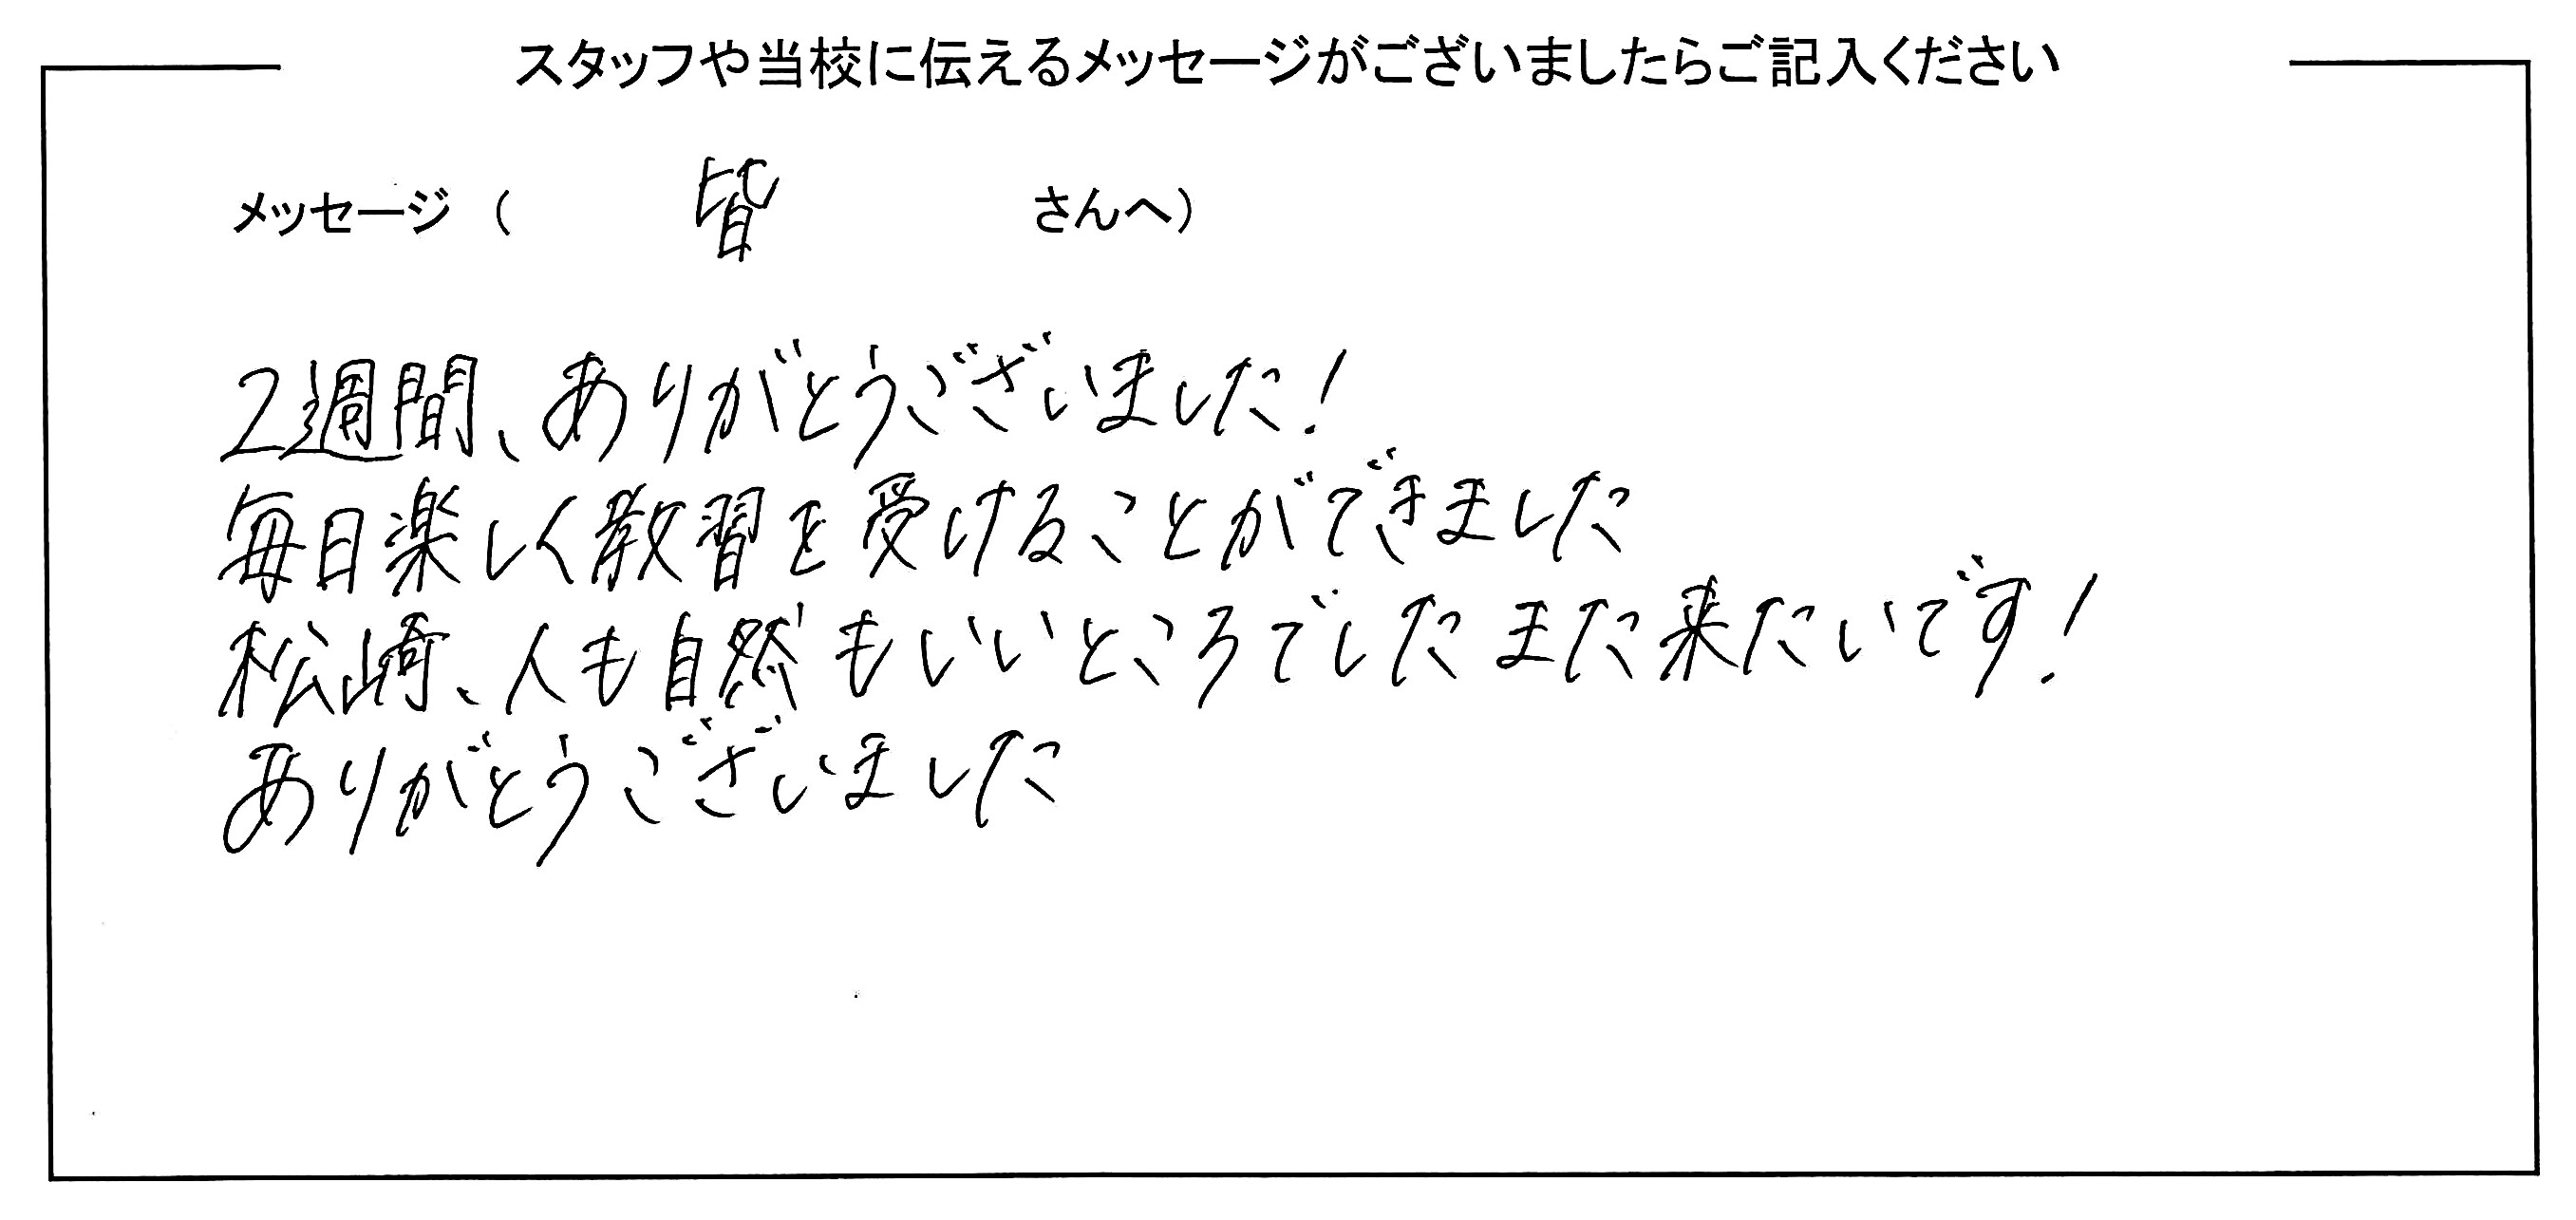 スタッフや当校に伝えるメッセージがございましたらご記入ください
メッセージ（ 皆 さんへ）
2週間、ありがとうございました！
毎日楽しく教習を受けることができました
松崎、人も自然もいいところでした また来たいです！
ありがとうございました